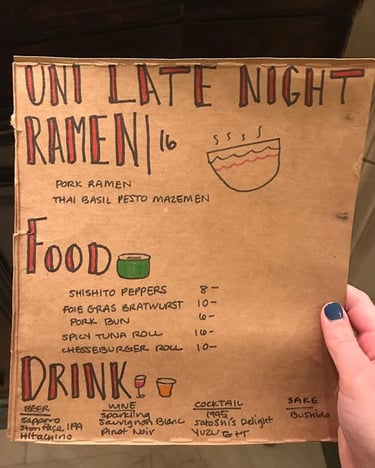 UNI LATE NIGHT
RAMEN | 16
PORK RAMEN
THAI BASIL PESTO MAZEMEN
FOOD
SHISHITO PEPPERS 8-
FOIE GRAS BRATWURST 10-
PORK BUN 6-
SPICY TUNA ROLL 16-
CHESSEBURGER ROLL 10-
DRINK
BEER WINE COCKTAIL SAKE
Sapporo Sparkling 1995 Bushido
Stonface IPA Sauvignon Blanc Satoshi's Delight
Hitachino Pinot Noir Yuzu G+T